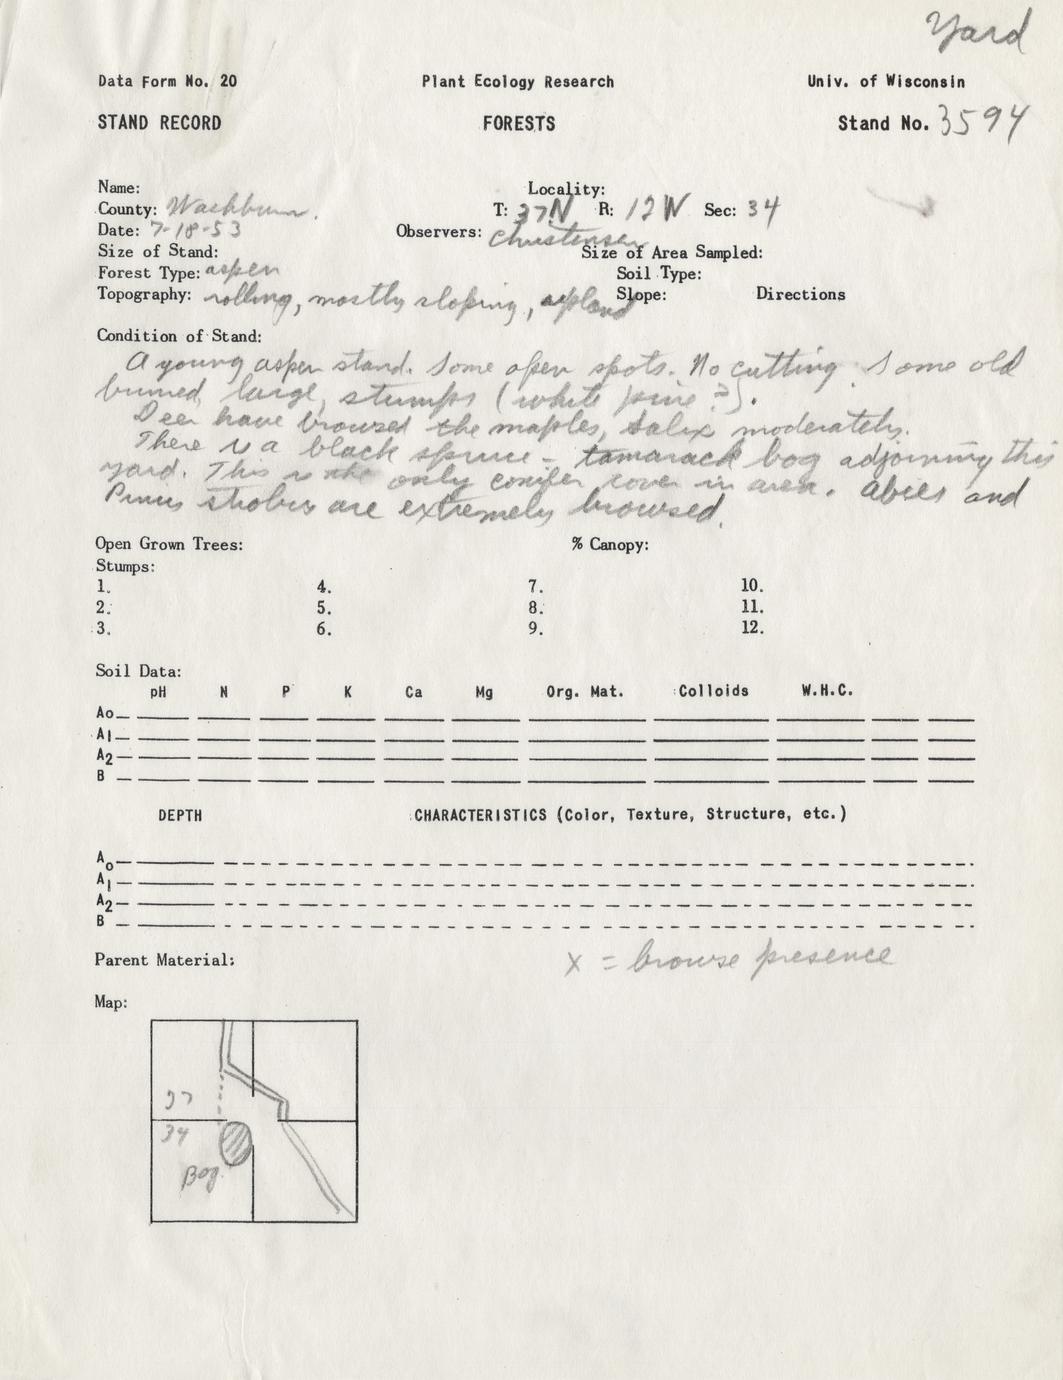 Yard
Data Form No. 20 Plant Ecology Research Univ. of Wisconsin
STAND RECORD FORESTS Stand No. 3594
Name: Locality:
County: Washburn. T: 37N R: 12W Sec: 34
Date: 7-18-53 Observers: Christensen
Size of Stand: Size of Area Sampled:
Forest Type: aspen Soil Type:
Topography: rolling, mostly sloping, upland Slope: Directions
Condition of Stand:
A young aspen stand. Some open spots. No cutting. Some old
burned large stumps (white pine?).
Deer have browsed the maples, Salix moderately.
There is a black spruce - tamarack bog adjoining this
yard. This is the only conifer cover in area. Abies and
Pinus strobus are extremely browsed.
Open Grown Trees: % Canopy:
Stumps:
1. 4. 7. 10.
2. 5. 8. 11.
3. 6. 9. 12.
Soil Data:
pH N P K Ca Mg Org. Mat. Colloids W.H.C.
Ao
A1
A2
B
DEPTH CHARACTERISTICS (Color, Texture, Structure, etc.)
Ao
A1
A2
B
Parent Material: X = browse presence
Map:
27
34
Bog